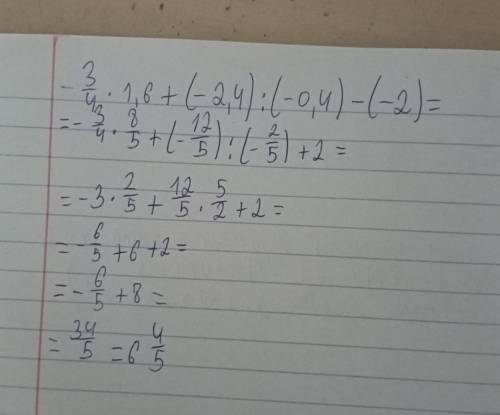 -3/4 · 1,6 + (-2,4) : (-0,4) - (-2) =
= -3/4 · 8/5 + (-12/5) : (-2/5) + 2 =
= -3 · 2/5 + 12/5 · 5/2 + 2 =
= -6/5 + 6 + 2 =
= -6/5 + 8 =
= 34/5 = 6 4/5